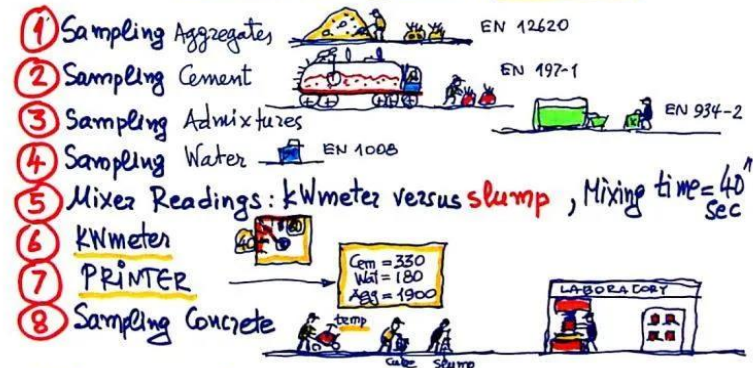 1 Sampling Aggregates EN 12620
2 Sampling Cement EN 197-1
3 Sampling Admixtures EN 934-2
4 Sampling Water EN 1008
5 Mixer Readings: kWmeter versus slump, Mixing time = 40" sec
6 KWmeter 40 60
7 PRINTER
Cem = 330
Wat = 180
Agg = 1900
LABORACORY
8 Sampling Concrete temp
cube slump